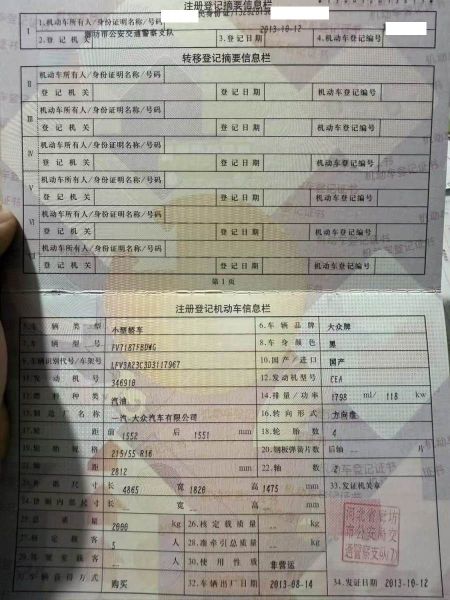 注册登记摘要信息栏
1.机动车所有人/身份证明名称/号码
2.登记机关 廊坊市公安交通警察支队 3.登记日期 2013-10-12 4.机动车登记编号
转移登记摘要信息栏
Ⅱ 机动车所有人/身份证明名称/号码
登记机关 登记日期 机动车登记编号
Ⅲ 机动车所有人/身份证明名称/号码
登记机关 登记日期 机动车登记编号
Ⅳ 机动车所有人/身份证明名称/号码
登记机关 登记日期 机动车登记编号
Ⅴ 机动车所有人/身份证明名称/号码
登记机关 登记日期 机动车登记编号
Ⅵ 机动车所有人/身份证明名称/号码
登记机关 登记日期 机动车登记编号
机动车所有人/身份证明名称/号码
登记机关 登记日期 机动车登记编号
第1页
注册登记机动车信息栏
5.车辆类型 小型轿车 6.车辆品牌 大众牌
7.车辆型号 8.车身颜色 黑
9.车辆识别代号/车架号 LFV3A23C3D3117967 10.国产/进口 国产
11.发动机号 346910 12.发动机型号 CEA
13.燃料种类 汽油 14.排量/功率 1798 ml/ 118 kw
15.制造厂名称 一汽-大众汽车有限公司 16.转向形式 方向盘
17.轮距 前 1552 后 1551 mm 18.轮胎数 4
19.轮胎规格 215/55 R16 20.钢板弹簧片数 后轴 片
21.轴距 2812 mm 22.轴数 2
23.外廓尺寸 长 4865 宽 1820 高 1475 mm 33.发证机关章
24.货厢内部尺寸 长 宽 高 mm
25.总质量 2000 kg 26.核定载质量 kg
27.核定载客 5 人 28.准牵引总质量 kg
29.驾驶室载客 人 30.使用性质 非营运
31.车辆获得方式 购买 32.车辆出厂日期 2013-08-14 34.发证日期 2013-10-12
河北省廊坊
市公安局交
通警察支队